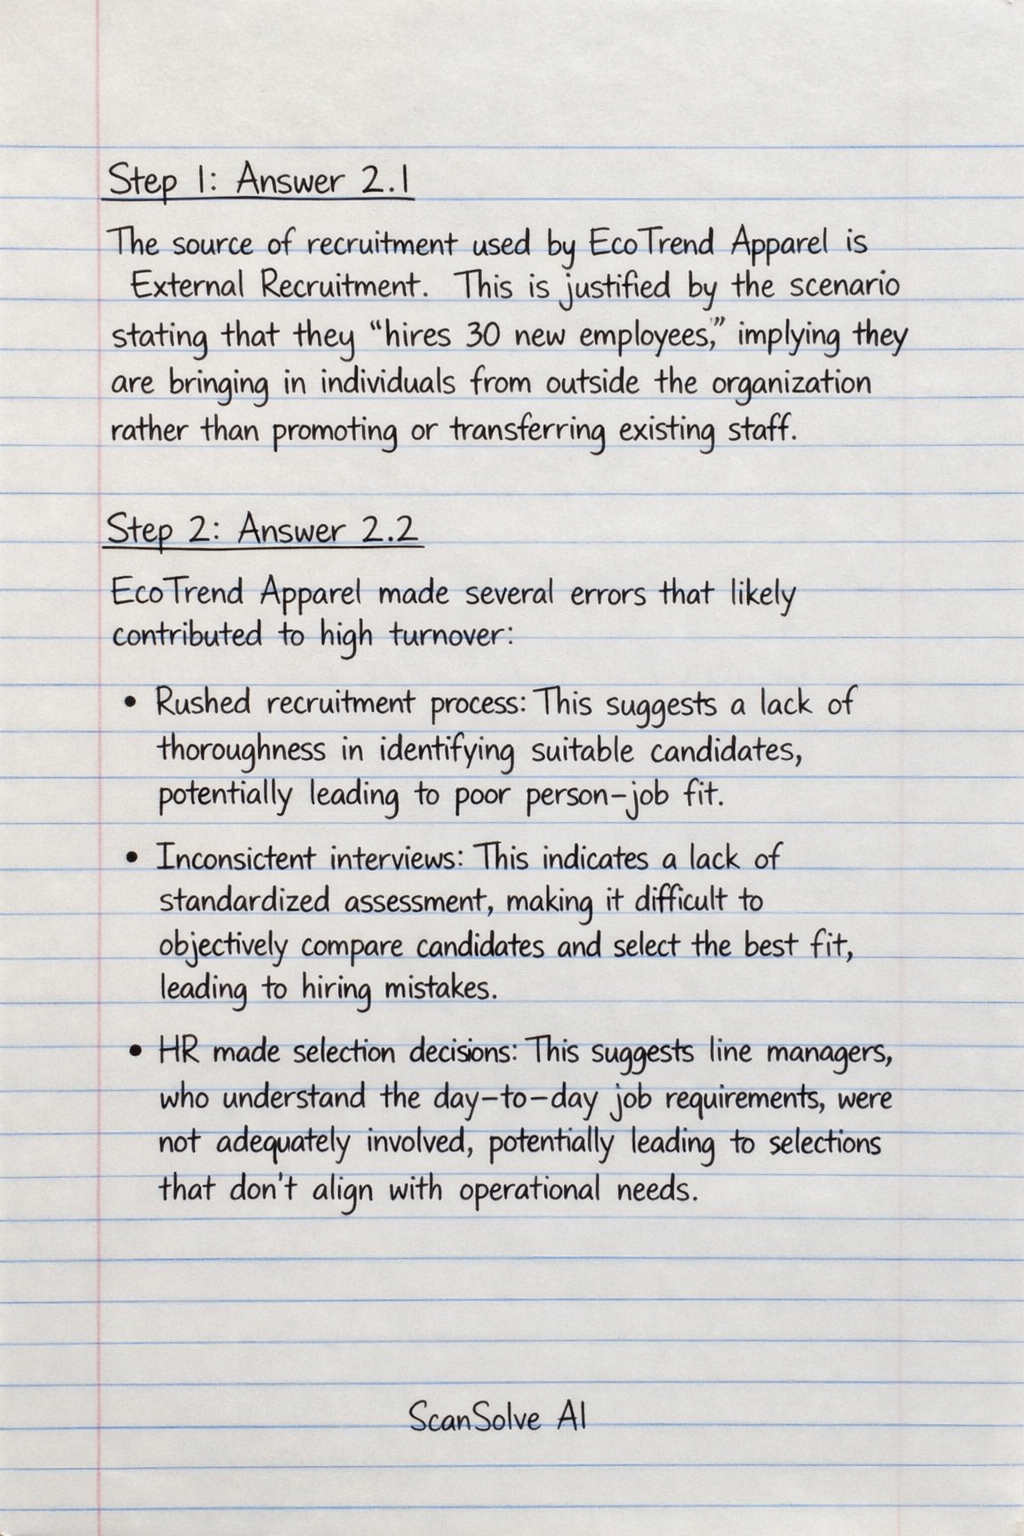 Step 1: Answer 2.1
The source of recruitment used by EcoTrend Apparel is
External Recruitment. This is justified by the scenario
stating that they “hires 30 new employees,” implying they
are bringing in individuals from outside the organization
rather than promoting or transferring existing staff.
Step 2: Answer 2.2
EcoTrend Apparel made several errors that likely
contributed to high turnover:
• Rushed recruitment process: This suggests a lack of
thoroughness in identifying suitable candidates,
potentially leading to poor person-job fit.
• Inconsictent interviews: This indicates a lack of
standardized assessment, making it difficult to
objectively compare candidates and select the best fit,
leading to hiring mistakes.
• HR made selection decisions: This suggests line managers,
who understand the day-to-day job requirements, were
not adequately involved, potentially leading to selections
that don't align with operational needs.
ScanSolve AI